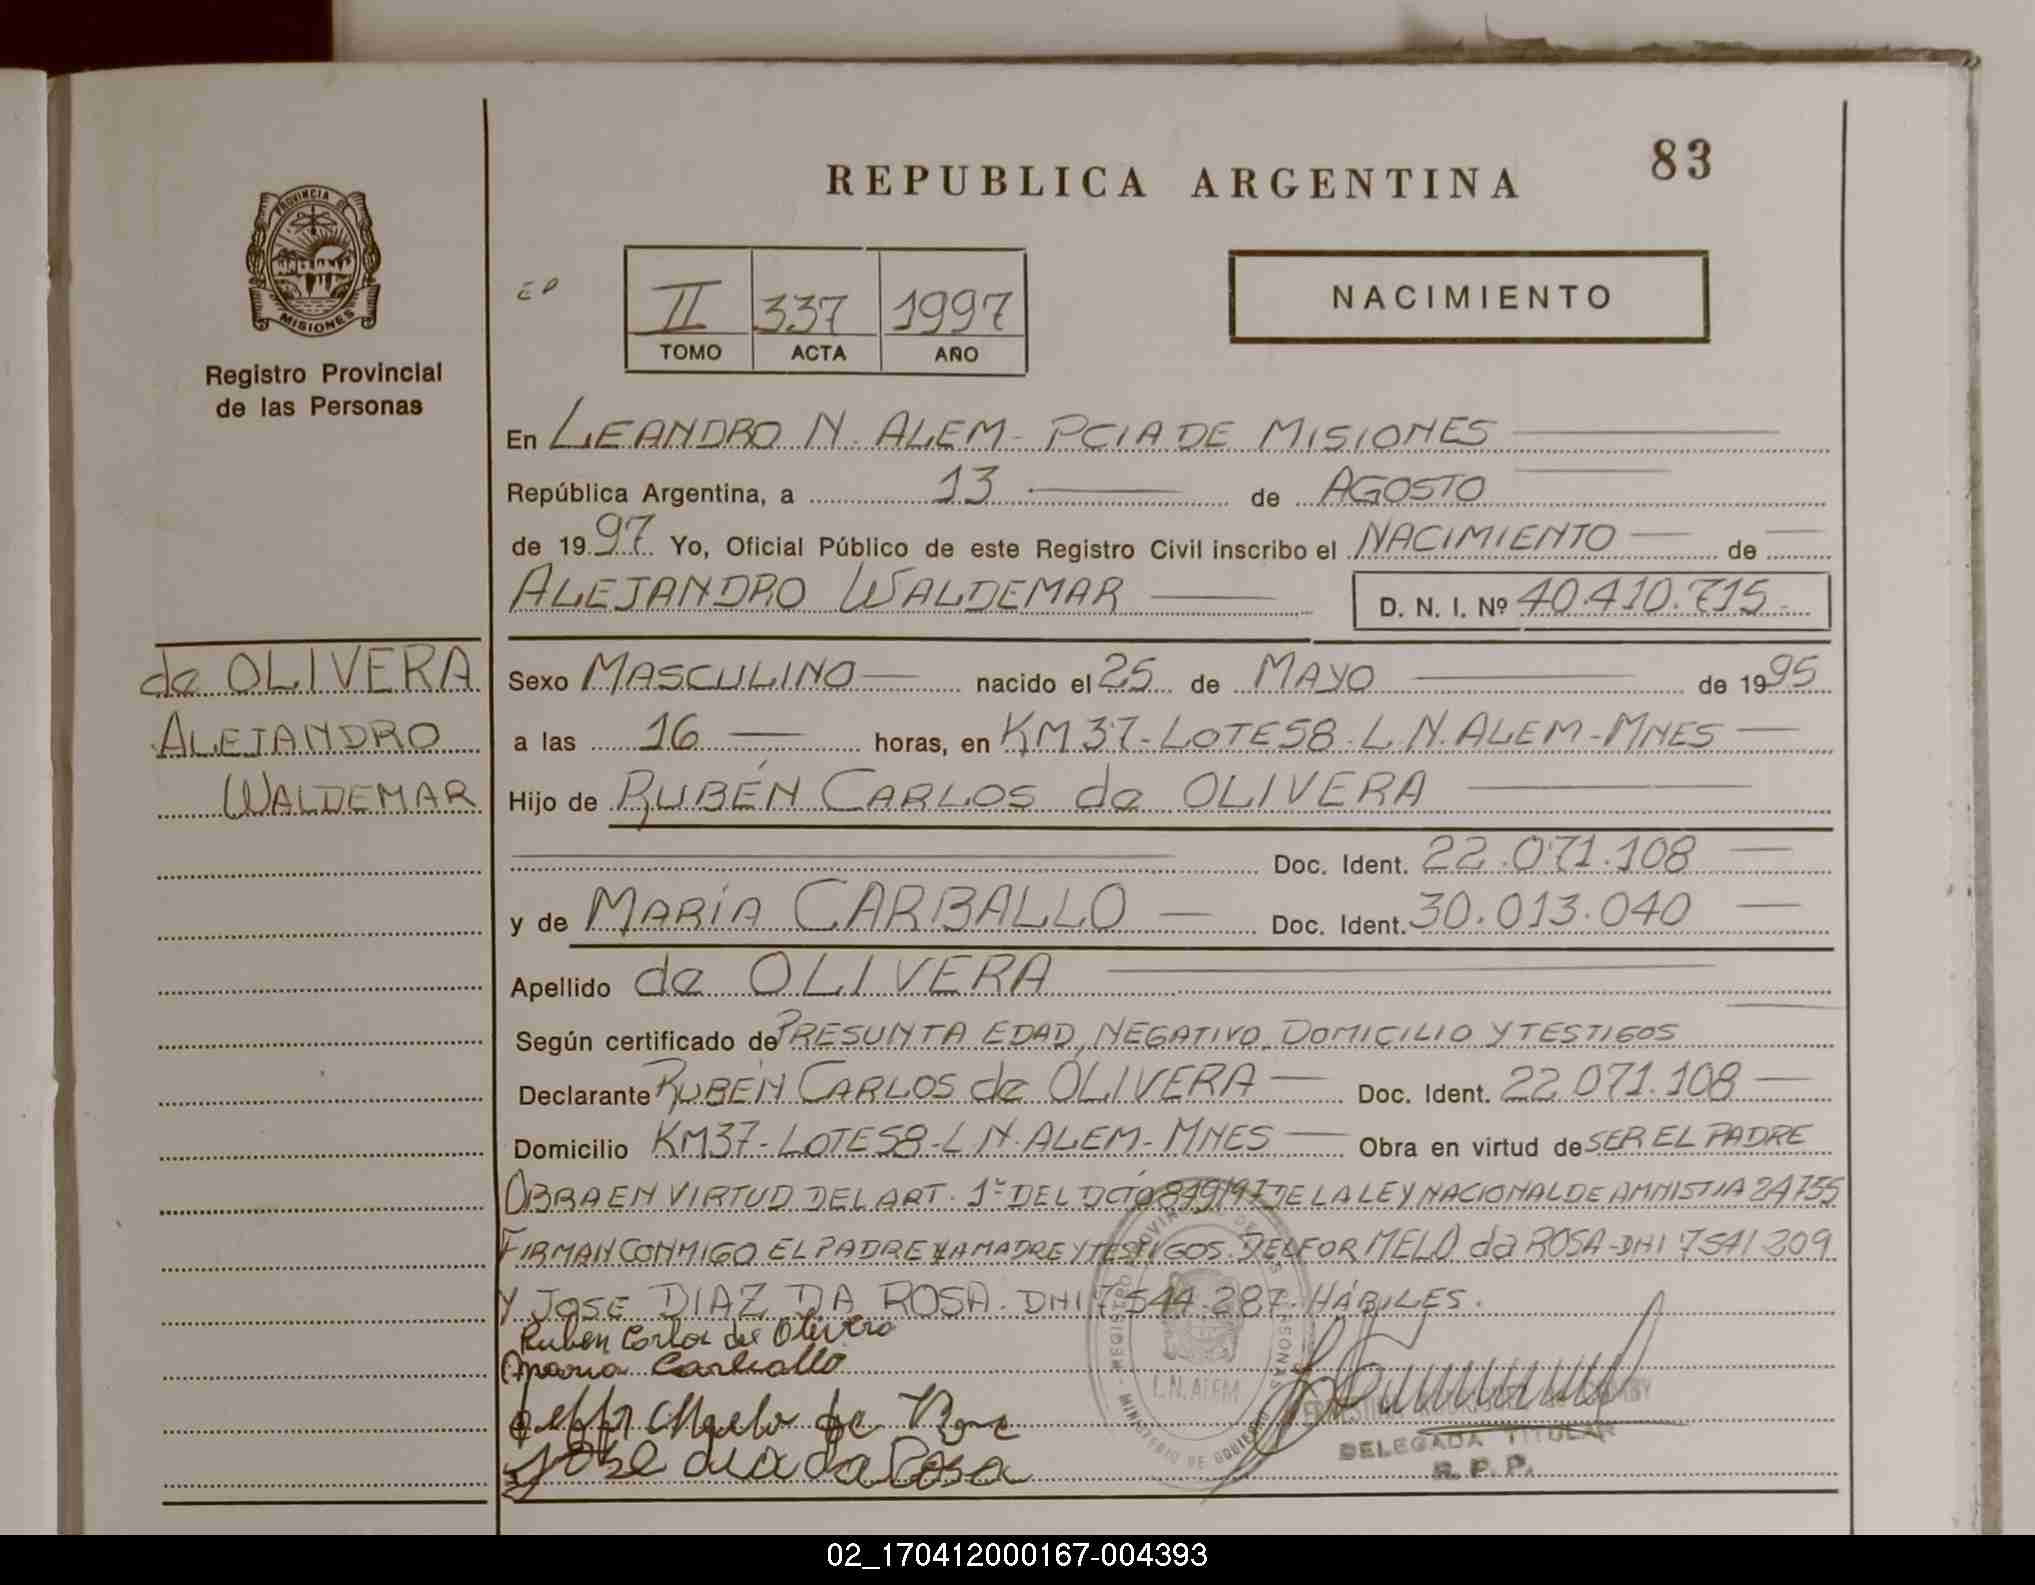 REPUBLICA ARGENTINA
83
PROVINCIA DE
MISIONES
Registro Provincial
de las Personas
II 337 1997
TOMO ACTA AÑO
NACIMIENTO
En LEANDRO N. ALEM - PCIA DE MISIONES
República Argentina, a 13 de AGOSTO
de 1997 Yo, Oficial Público de este Registro Civil inscribo el NACIMIENTO de
ALEJANDRO WALDEMAR D. N. I. Nº 40.410.715
de OLIVERA
ALEJANDRO
WALDEMAR
Sexo MASCULINO nacido el 25 de MAYO de 1995
a las 16 horas, en KM 37-LOTE 58-L.N.ALEM-MNES
Hijo de RUBÉN CARLOS de OLIVERA
Doc. Ident. 22.071.108
y de MARÍA CARBALLO Doc. Ident. 30.013.040
Apellido de OLIVERA
Según certificado de PRESUNTA EDAD, NEGATIVO, DOMICILIO Y TESTIGOS
Declarante RUBÉN CARLOS de OLIVERA Doc. Ident. 22.071.108
Domicilio KM37-LOTE58-L.N.ALEM-MNES Obra en virtud de SER EL PADRE
OBRA EN VIRTUD DEL ART. 1º DEL DCTO 849/97 DE LA LEY NACIONAL DE AMNISTIA 24755
FIRMAN CONMIGO EL PADRE LA MADRE Y TESTIGOS. DELFOR MELO da ROSA-DNI 7541209
Y JOSE DIAZ DA ROSA. DNI 7.544.287. HÁBILES.
Ruben Carlos de Olivera
Maria Carballo
Jose dia da Rosa
L.N. ALEM
DELEGADA TITULAR
R. P. P.
02_170412000167-004393